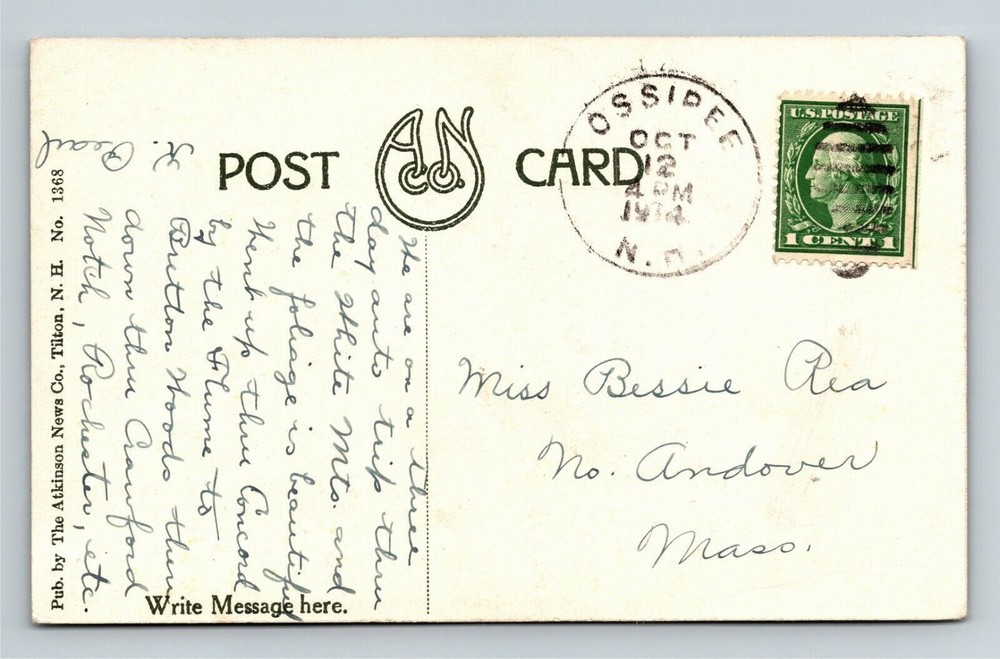 POST CARD
AN Co.
OSSIPEE
OCT
12
4 PM
1914
N.H.
U.S. POSTAGE
1 CENT 1
We are on a three
day auto trip thru
the White Mts. and
the foliage is beautiful
Went up thru Concord
by the Flume to
Bretton Woods then
down thru Crawford
Notch, Rochester, etc.
Pearl
Miss Bessie Rea
No. Andover
Mass.
Write Message here.
Pub. by The Atkinson News Co., Tilton, N. H. No. 1368